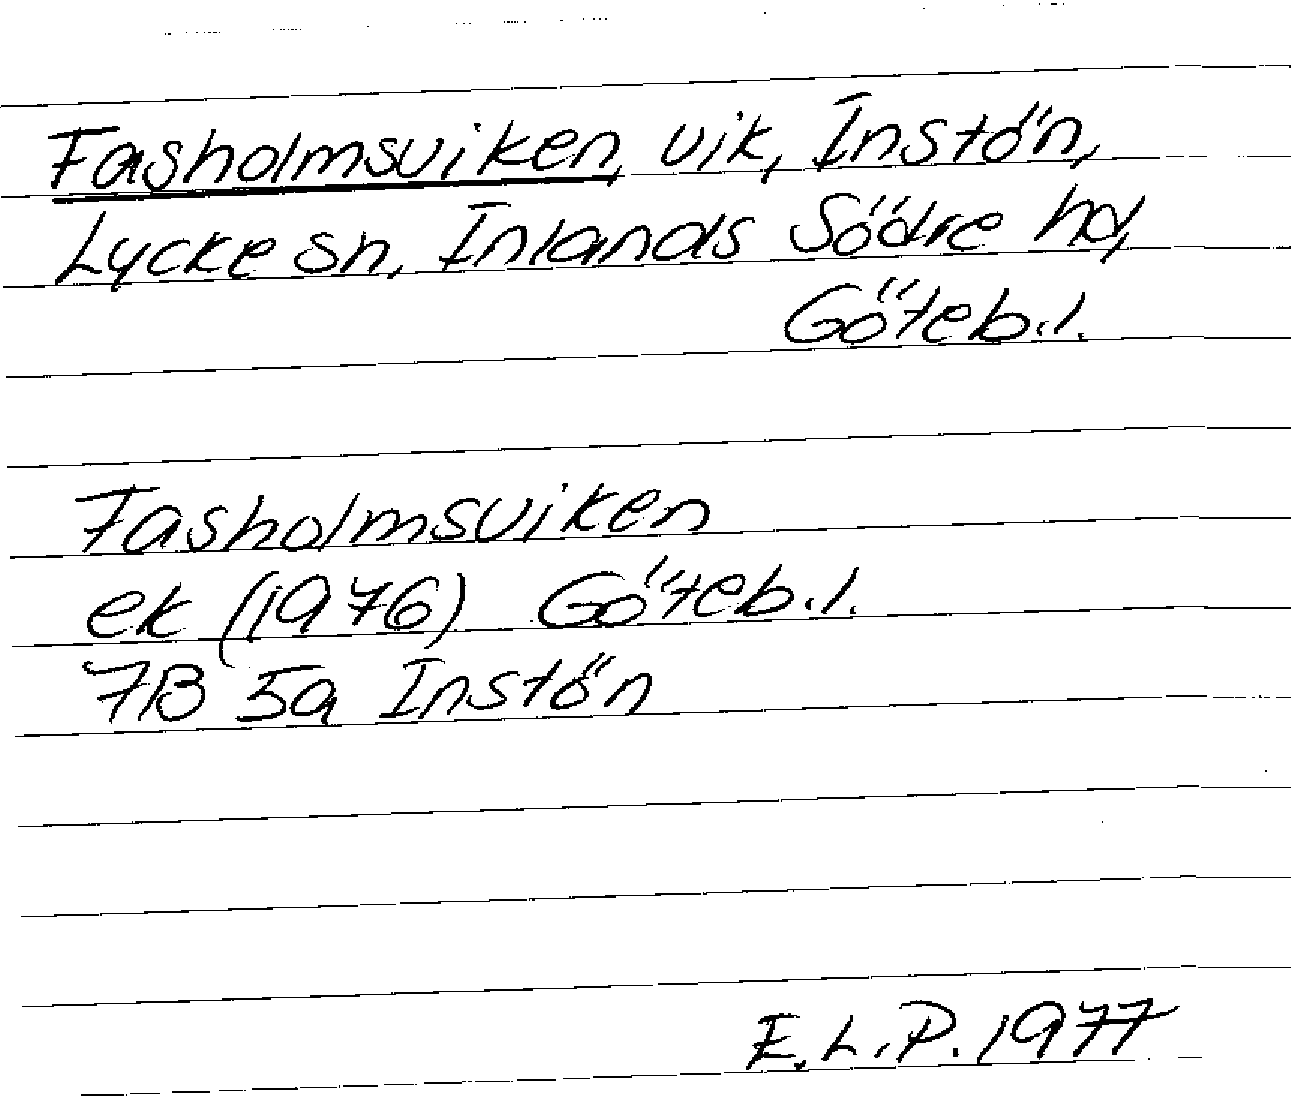 Fasholmsviken, vik, Instön,
Lycke sn, Inlands Södre hd,
Göteb.l.
Fasholmsviken
ek (1976) Göteb.l.
7B 5a Instön
E.L.P. 1977